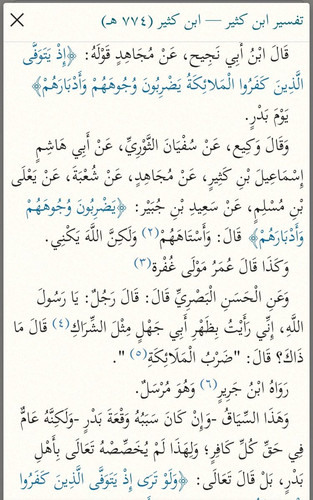 تفسير ابن كثير — ابن كثير (٧٧٤ هـ)
قَالَ ابْنُ أَبِي نَجِيح، عَنْ مُجَاهِدٍ قَوْلَهُ: ﴿إِذْ يَتَوَفَّى
الَّذِينَ كَفَرُوا الْمَلائِكَةُ يَضْرِبُونَ وُجُوهَهُمْ وَأَدْبَارَهُمْ﴾
يَوْمَ بَدْرٍ.
وَقَالَ وَكِيع، عَنْ سُفْيَانَ الثَّوْرِيِّ، عَنْ أَبِي هَاشِمٍ
إِسْمَاعِيلَ بْنِ كَثِيرٍ، عَنْ مُجَاهِدٍ، عَنْ شُعْبَةَ، عَنْ يَعْلَى
بْنِ مُسْلِمٍ، عَنْ سَعِيدِ بْنِ جُبَيْر: ﴿يَضْرِبُونَ وُجُوهَهُمْ
وَأَدْبَارَهُمْ﴾ قَالَ: وَأَسْتَاهَهُمْ(٢) وَلَكِنَّ اللَّهَ يَكْنِي.
وَكَذَا قَالَ عُمَرُ مَوْلَى غُفْرة(٣)
وَعَنِ الْحَسَنِ الْبَصْرِيِّ قَالَ: قَالَ رَجُلٌ: يَا رَسُولَ
اللَّهِ، إِنِّي رَأَيْتُ بِظَهْرِ أَبِي جَهْلٍ مِثْلَ الشِّرَاكِ(٤) قَالَ مَا
ذَاكَ؟ قَالَ: "ضَرْبُ الْمَلَائِكَةِ(٥) ".
رَوَاهُ ابْنُ جَرِيرٍ(٦) وَهُوَ مُرْسَلٌ.
وَهَذَا السِّيَاقُ -وَإِنْ كَانَ سَبَبُهُ وَقْعَةَ بَدْرٍ -وَلَكِنَّهُ عَامٌّ
فِي حَقِّ كُلِّ كَافِرٍ؛ وَلِهَذَا لَمْ يُخَصِّصْهُ تَعَالَى بِأَهْلِ
بَدْرٍ، بَلْ قَالَ تَعَالَى: ﴿وَلَوْ تَرَى إِذْ يَتَوَفَّى الَّذِينَ كَفَرُوا